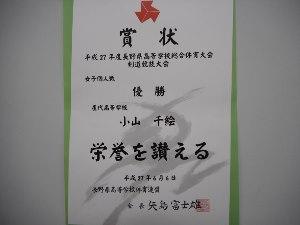 賞状
平成27年度長野県高等学校総合体育大会
剣道競技大会
女子個人戦
優勝
屋代高等学校
小山 千絵
栄誉を讃える
平成27年6月6日
長野県高等学校体育連盟
会長 矢島富士雄